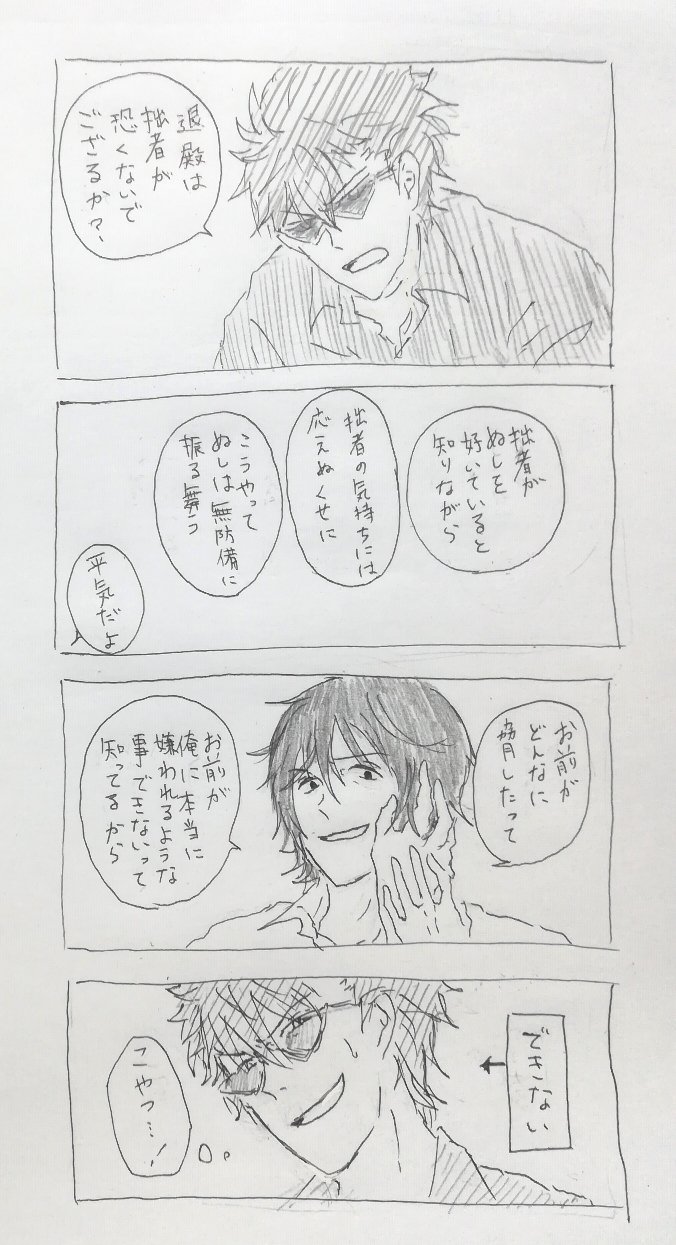 退殿は
拙者が
恐くないで
ござるか?
拙者が
ぬしを
好いていると
知りながら
拙者の気持ちには
応えぬくせに
こうやって
ぬしは無防備に
振る舞う
平気だよ
お前が
どんなに
脅したって
お前が
俺に本当に
嫌われるような
事できないって
知ってるから
できない
こやつ…!